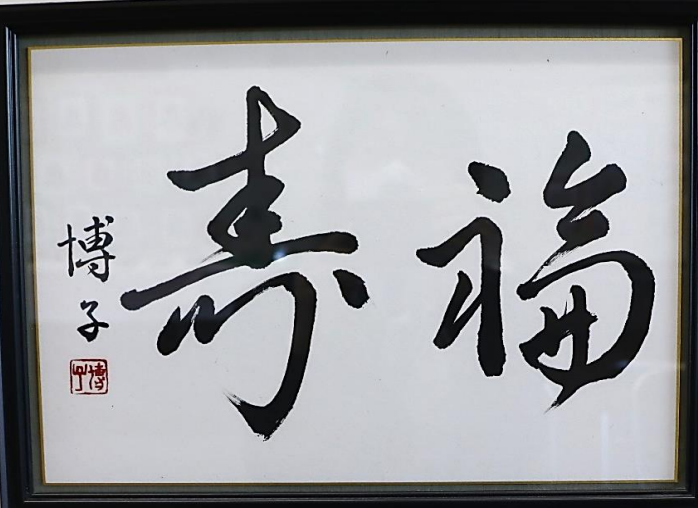 福寿
博子
博子